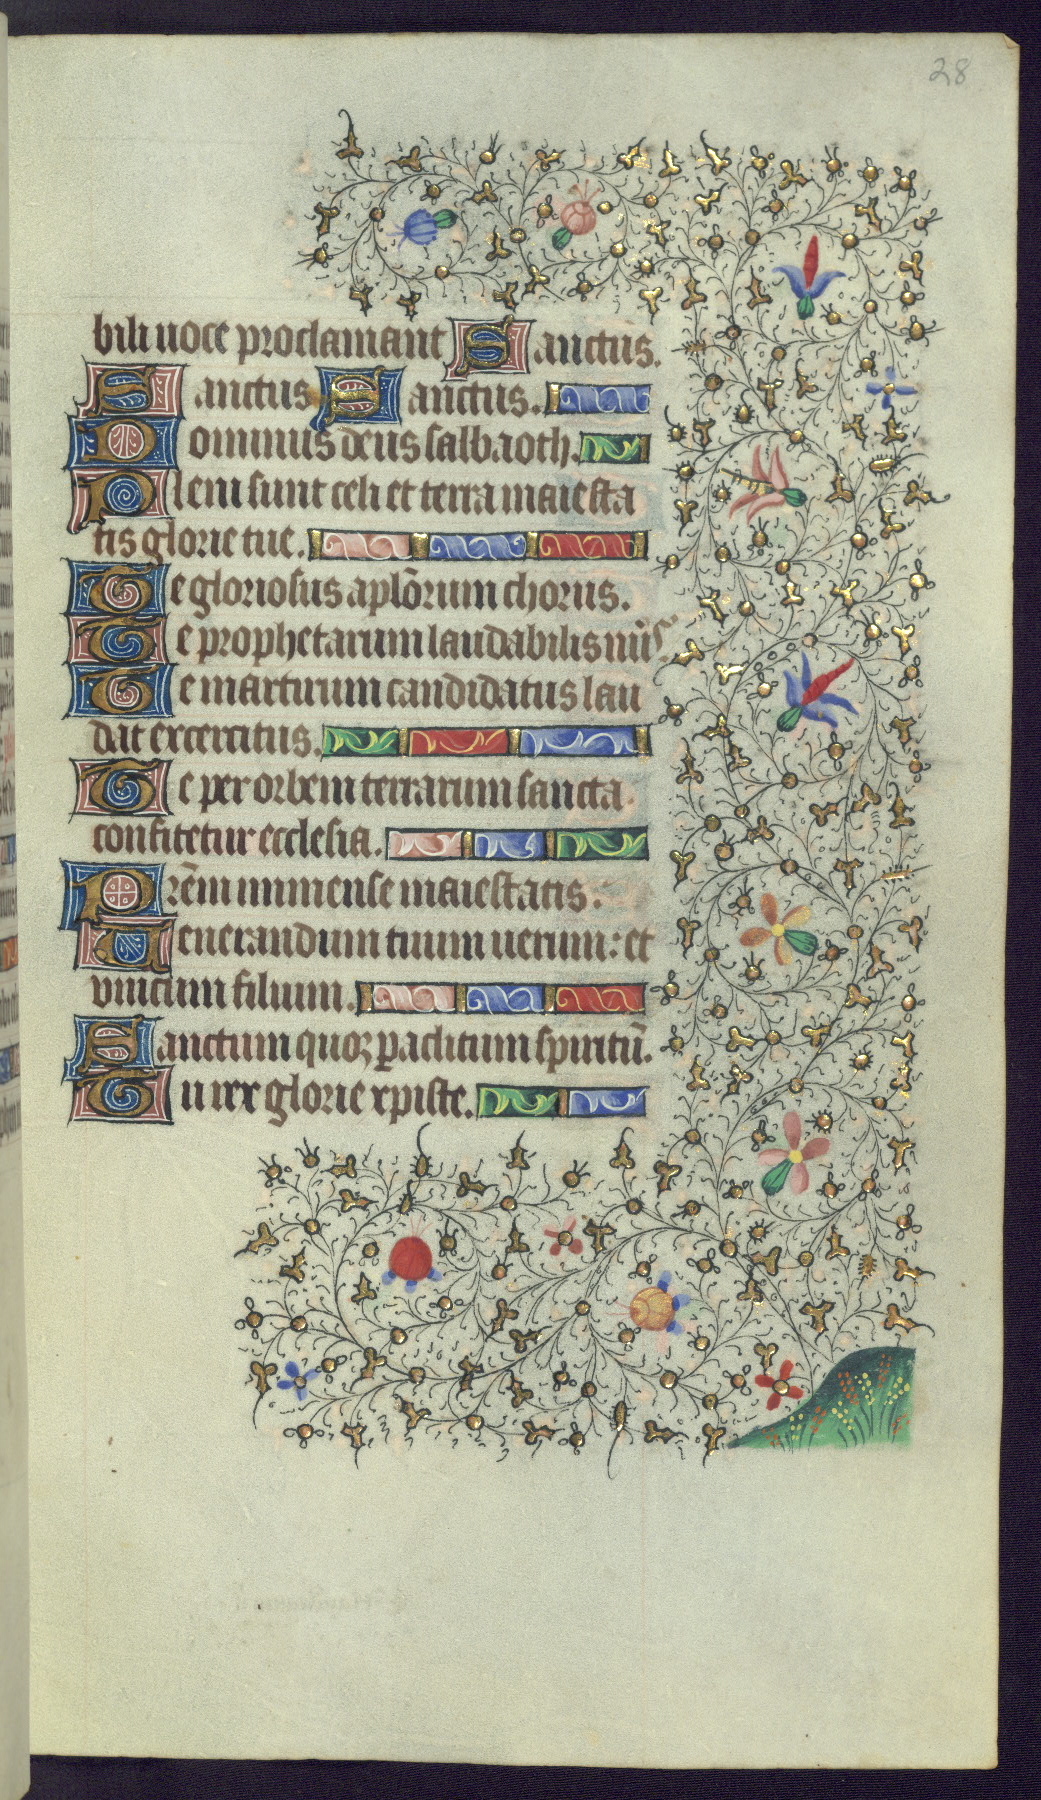 28
bili uoce proclamant Sanctus.
Sanctus Sanctus.
Dominus deus salbaoth.
Pleni sunt celi et terra maiesta
tis glorie tue.
Te gloriosus aplõrum chorus.
Te prophetarum laudabilis
Te martirum candidatus lau
dat excercitus.
Te per orbem terrarum sancta
confitetur ecclesia.
Prẽm immense maiestatis.
Uenerandum tuum uerum: et
vnicum filium.
Sanctum quoqꝫ ꝑaclitum spiritũ.
Tu rex glorie xpiste.